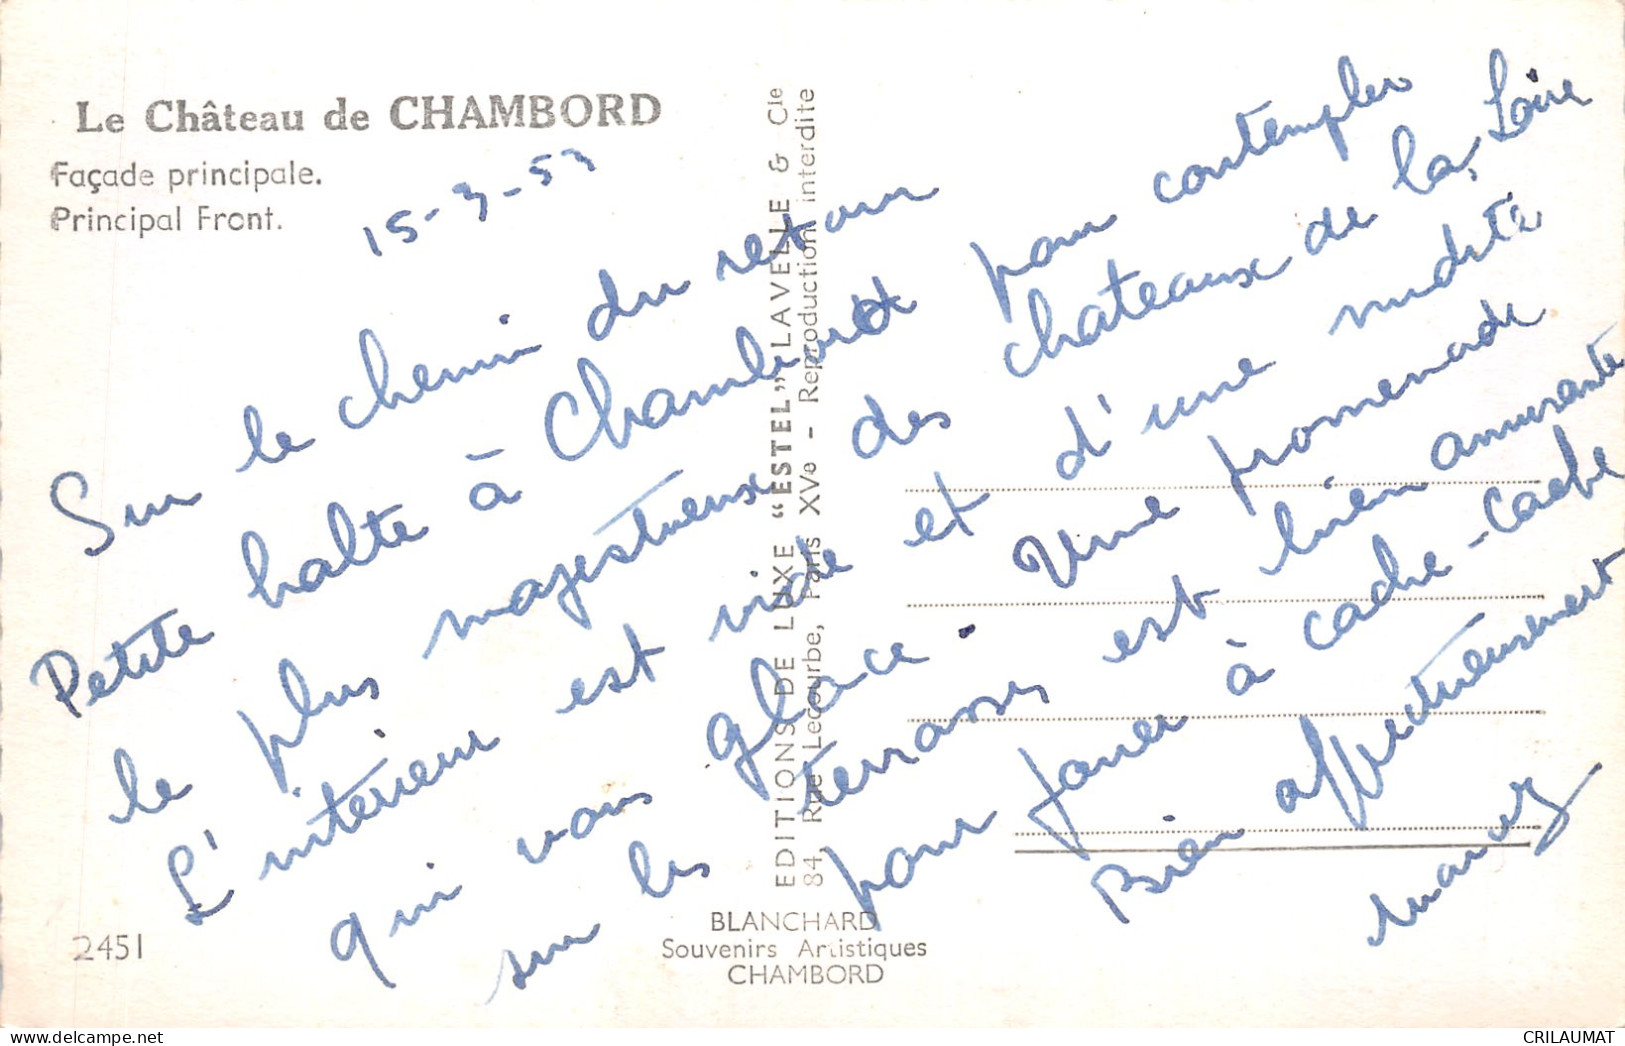 Le Château de CHAMBORD
Façade principale.
Principal Front.
15-3-53
Sur le chemin du retour
Petite halte à Chambord pour contempler
le plus majestueux des chateaux de la Loire
L'intérieur est vide et d'une nudité
qui vous glace. Une promenade
sur les terrasses est bien amusante
pour jouer à cache-cache
Bien affectueusement
EDITIONS DE LUXE "ESTEL" LAVELLE & Cie
84, Rue Lecourbe, Paris XVe - Reproduction interdite
BLANCHARD
Souvenirs Artistiques
CHAMBORD
2451
CRILAUMAT